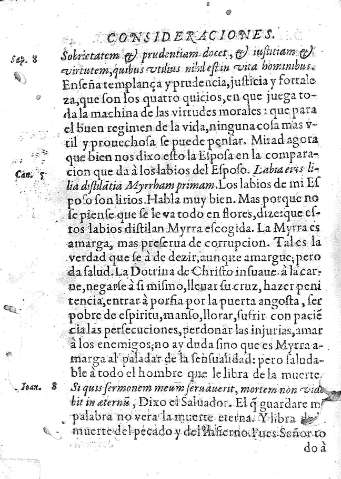 CONSIDERACIONES.
Sap. 8 Sobrietatem & prudentiam docet, & iustitiam &
virtutem, quibus vtilius nihil est in vita hominibus.
Enseña templança y prudencia, justicia y fortale
za, que son los quatro quicios, en que juega to-
da la machina de las virtudes morales: que para
el buen regimen de la vida, ninguna cosa mas v-
til y prouechosa se puede pensar. Mirad agora
que bien nos dixo esto la Esposa en la compara-
Can. 5 cion que da à los labios del Esposo. Labia eius li-
lia distilātia Myrrham primam. Los labios de mi Es
poso son lirios. Habla muy bien. Mas porque no
se piense que se le va todo en flores, dize: que es-
tos labios distilan Myrra escogida. La Myrra es
amarga, mas preserua de corrupcion. Tal es la
verdad que se à de dezir, aunque amargue; pero
da salud. La Dotrina de Christo insuaue à la car-
ne, negarse à si mismo, lleuar su cruz, hazer peni
tencia, entrar à porfia por la puerta angosta, ser
pobre de espiritu, manso, llorar, sufrir con paciē
cia las persecuciones, perdonar las injurias, amar
à los enemigos; no ay duda sino que es Myrra a-
marga al paladar de la sensualidad: pero saluda-
ble à todo el hombre que le libra de la muerte.
Ioan. 8 Si quis sermonem meum seruauerit, mortem non vide
bit in æternū, Dixo el Saluador. El q̃ guardare m
palabra no vera la muerte eterna. Y libra de
muerte del pecado y del Infierno. Pues Señor to
do à